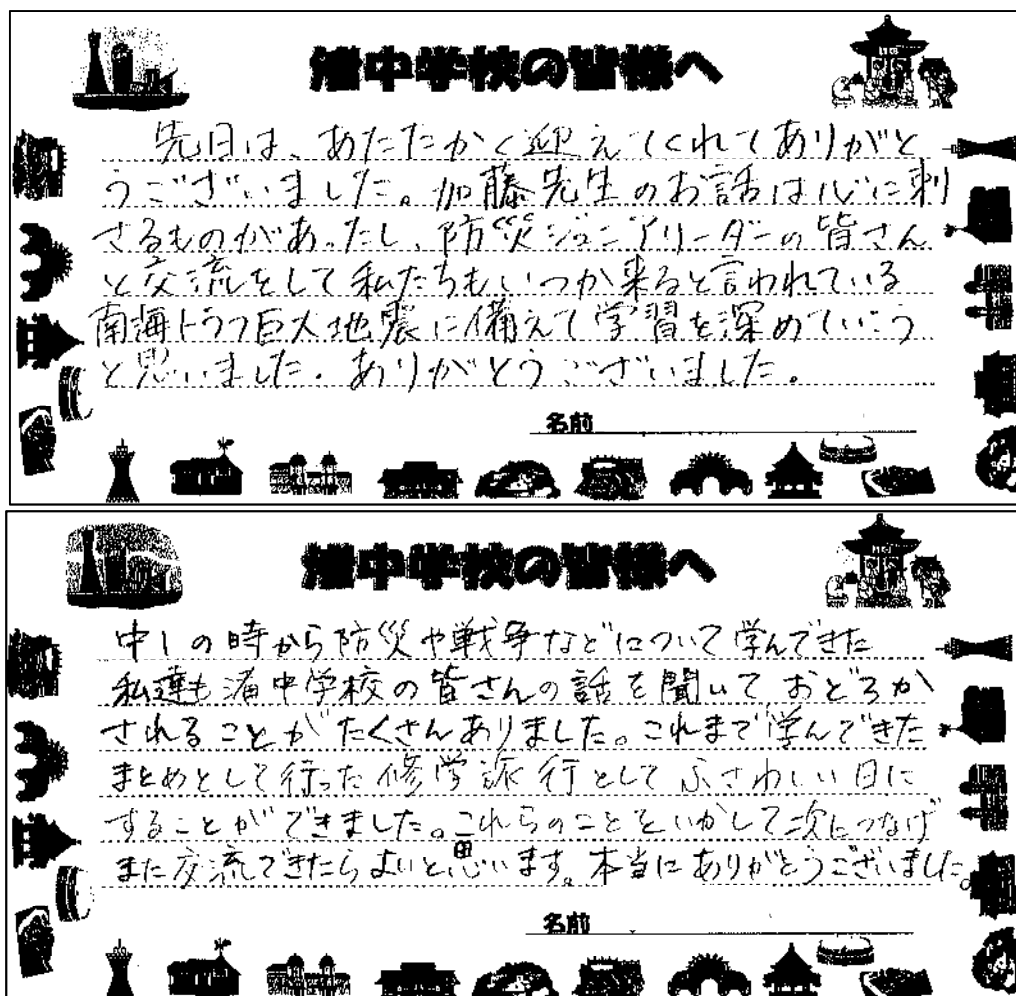 渚中学校の皆様へ
先日は、あたたかく迎えてくれてありがと
うございました。加藤先生のお話は心に刺
さるものがあったし、防災ジュニアリーダーの皆さん
と交流をして私たちもいつか来ると言われている
南海トラフ巨大地震に備えて学習を深めていこう
と思いました。ありがとうございました。
名前
渚中学校の皆様へ
中1の時から防災や戦争などについて学んできた
私達も渚中学校の皆さんの話を聞いておどろか
されることがたくさんありました。これまで学んできた
まとめとして行った修学旅行としてふさわしい日に
することができました。これらのことをいかして次につなげ
また交流できたらよいと思います。本当にありがとうございました。
名前